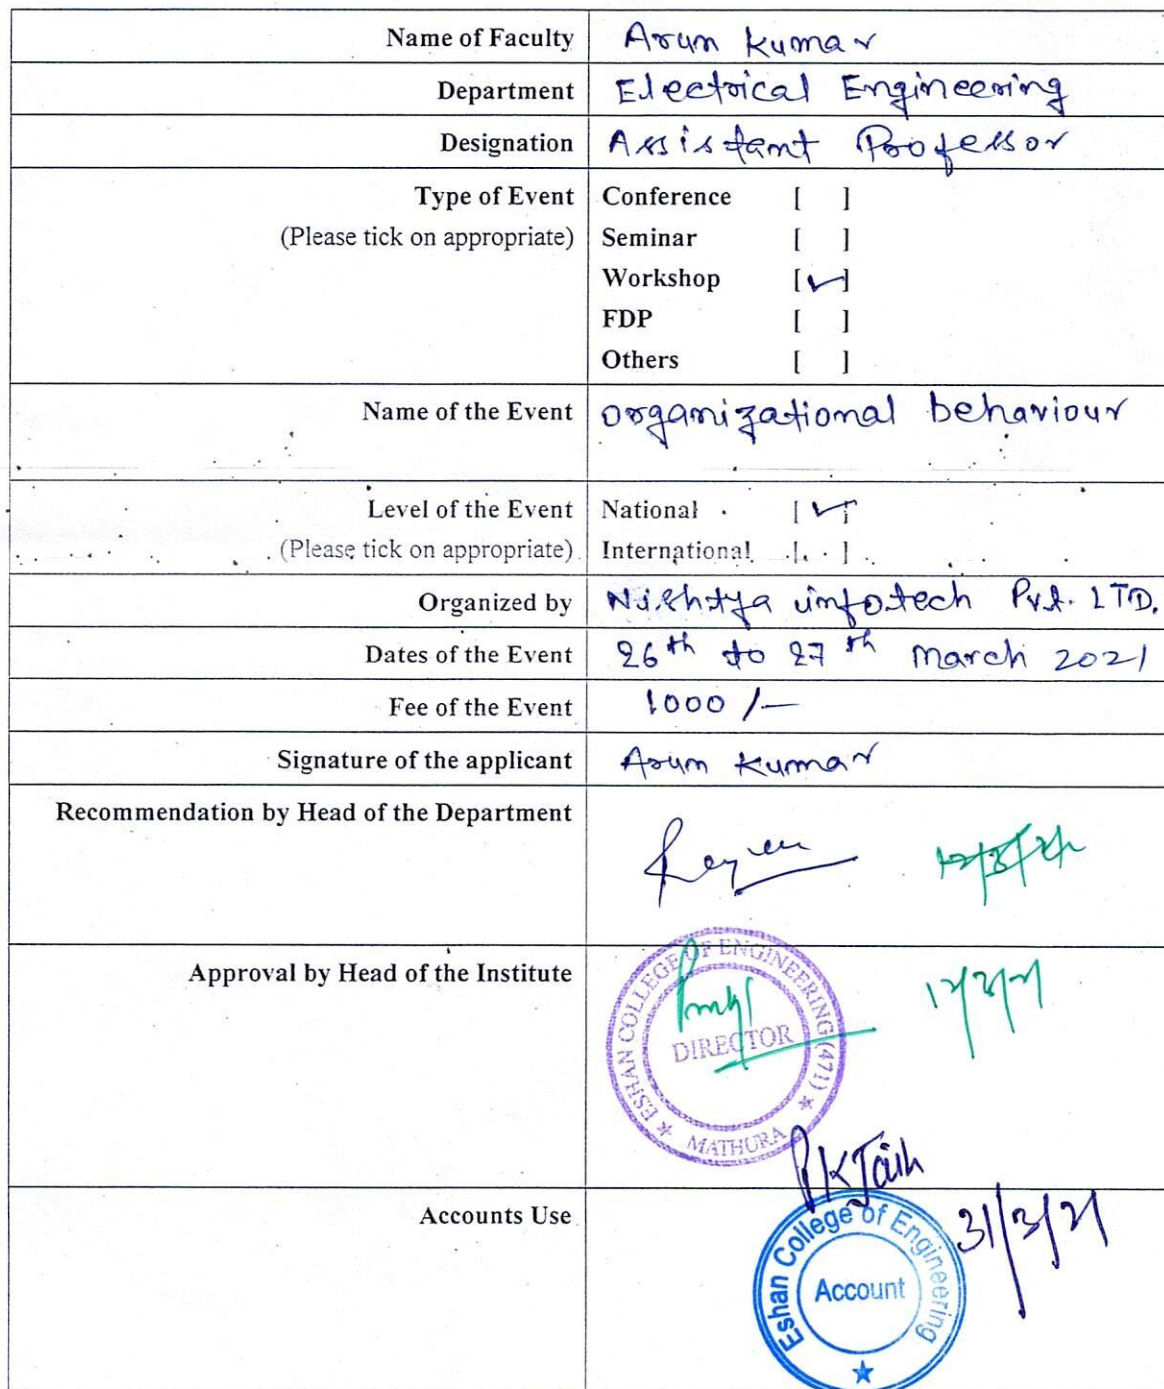 Name of Faculty Arun Kumar
Department Electrical Engineering
Designation Assistant Professor
Type of Event Conference [ ]
(Please tick on appropriate) Seminar [ ]
Workshop [✓]
FDP [ ]
Others [ ]
Name of the Event organizational behaviour
Level of the Event National [✓]
(Please tick on appropriate) International [ ]
Organized by infotech Pvt. LTD.
Dates of the Event 26th to 27th March 2021
Fee of the Event 1000/-
Signature of the applicant Arun Kumar
Recommendation by Head of the Department
Approval by Head of the Institute
ESHAN COLLEGE OF ENGINEERING (471)
DIRECTOR
MATHURA
PK Jain
Accounts Use 31/3/21
Eshan College of Engineering
Account